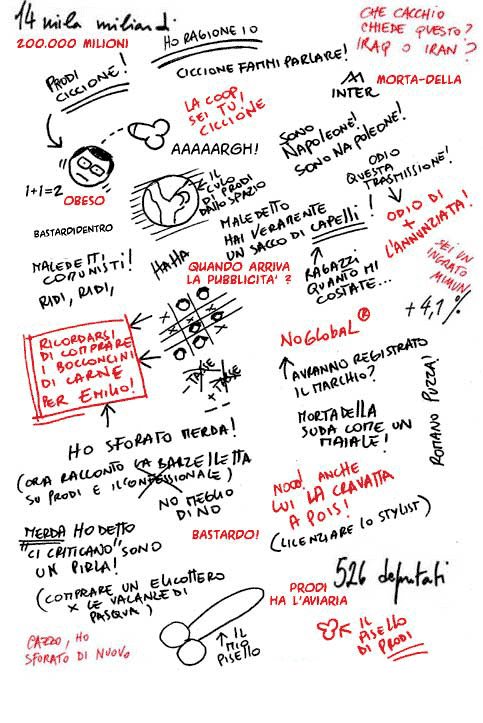 14 mila miliardi
200.000 MILIONI
HO RAGIONE IO
CHE CACCHIO
CHIEDE QUESTO?
IRAQ O IRAN?
PRODI
CICCIONE!
CICCIONE FAMMI PARLARE!
INTER
MORTA-DELLA
LA COOP,
SEI TU!
CICCIONE
AAAAARGH!
SONO
NAPOLEONE!
SONO NAPOLEONE!
ODIO
QUESTA
TRASMISSIONE!
1+1=2
OBESO
IL
CULO
DI PRODI
DALLO SPAZIO
ODIO DI
+
L'ANNUNZIATA!
BASTARDIDENTRO
MALEDETTO
HAI VERAMENTE
UN SACCO DI CAPELLI!
MALEDETTI
COMUNISTI!
RIDI, RIDI,
HAHA
QUANDO ARRIVA
LA PUBBLICITA' ?
RAGAZZI
QUANTO MI
COSTATE...
SEI UN
INGRATO
MIMUN
+4,1%
RICORDARSI
DI COMPRARE
I BOCCONCINI
DI CARNE
PER EMILIO!
X
X
X
X
NOGLOBAL®
- TASSE
+ TASSE
--
AVRANNO REGISTRATO
IL MARCHIO?
MORTADELLA
SUDA COME UN
MAIALE!
ROMANO PUZZA!
HO SFORATO MERDA!
(ORA RACCONTO LA BARZELLETTA
SU PRODI E IL CONFESSIONALE)
NO MEGLIO
DI NO
NOOO! ANCHE
LUI LA CRAVATTA
A POIS!
(LICENZIARE LO STYLIST)
MERDA HO DETTO
"CI CRITICANO" SONO
UN PIRLA!
BASTARDO!
(COMPRARE UN ELICOTTERO
X LE VACANZE DI
PASQUA)
PRODI
HA L'AVIARIA
526 deputati
CAZZO, HO
SFORATO DI NUOVO
IL
MIO
PISELLO
IL
PISELLO
DI PRODI